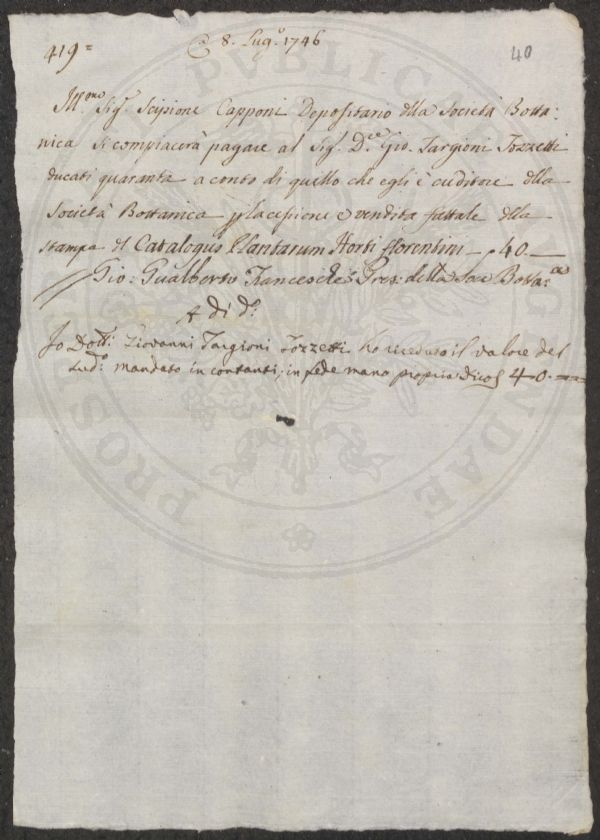 419= A 8. Lug.º 1746 40
M.º Sig.r Scipione Capponi Depositario della Società Botta:
nica Si compiacerà pagare al Sig.r D.re Gio. Targioni Tozzetti
ducati quaranta a conto di quello che egli è creditore della
Società Bottanica p la cessione e vendita fattale della
stampa del Catalogus Plantarum Horti fflorentini — 40. —
Gio: Gualberto Franceschi Pres: della Soc Botta:ca
A dì d.º
Io Dott: Giovanni Targioni Tozzetti ho ricevuto il valore del
sud.º mandato in contanti; in fede mano propria dico 40. ==
PVBLICAE
PROSPE
NDAE